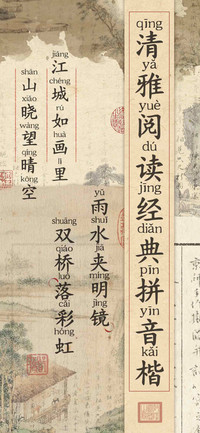 qīng yǎ yuè dú jīng diǎn pīn yīn kǎi
清雅阅读经典拼音楷
jiāng chéng rú huà lǐ
江城如画里
shān xiǎo wàng qíng kōng
山晓望晴空
yǔ shuǐ jiā míng jìng
雨水夹明镜
shuāng qiáo luò cǎi hóng
双桥落彩虹